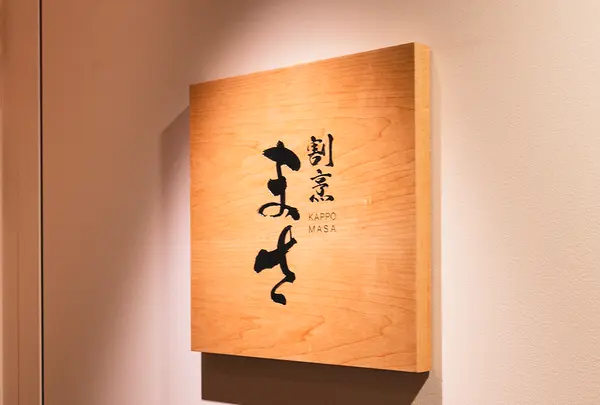 割烹
まさ
KAPPO
MASA